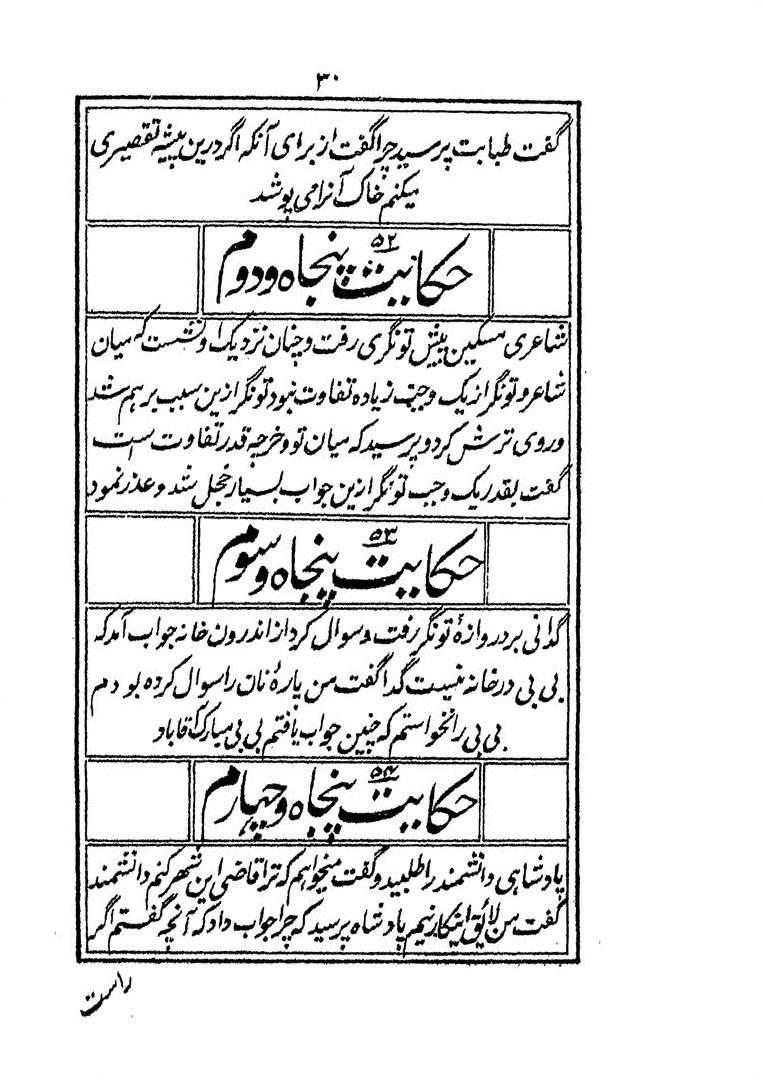 ۳۰
گفت طبابت پرسید چرا گفت از برای آنکه اگر درین پیشه تقصیری
میکنم خاک آنرا می پوشد
حکایت پنجاه و دوم ۵۲
شاعری مسکین پیش تونگری رفت و چنان نزدیک او نشست که میان
شاعر و تونگر از یک وجب زیاده تفاوت نبود تونگر ازین سبب برهم شد
و روی ترش کرد و پرسید که میان تو و خر چه قدر تفاوت است
گفت بقدر یک وجب تونگر ازین جواب بسیار خجل شد و عذر نمود
حکایت پنجاه و سوم ۵۳
گدائی بر دروازهٔ تونگر رفت و سوال کرد از اندرون خانه جواب آمد که
بی بی در خانه نیست گدا گفت من پارهٔ نان را سوال کرده بودم
بی بی را نخواستم که چنین جواب یافتم بی بی مبارک آقا باد
حکایت پنجاه و چهارم ۵۴
پادشاهی دانشمند را طلبید و گفت میخواهم که ترا قاضی این شهر کنم دانشمند
گفت من لائق اینکار نیم پادشاه پرسید که چرا جواب داد که آنچه گفتم اگر
راست